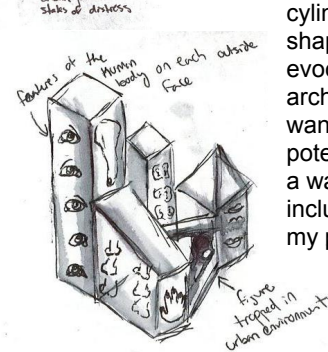 states of distress
features of the
human
body on each outside
face
figure
trapped in
urban environment
cylin
shap
evoc
arch
wan
pote
a wa
inclu
my p